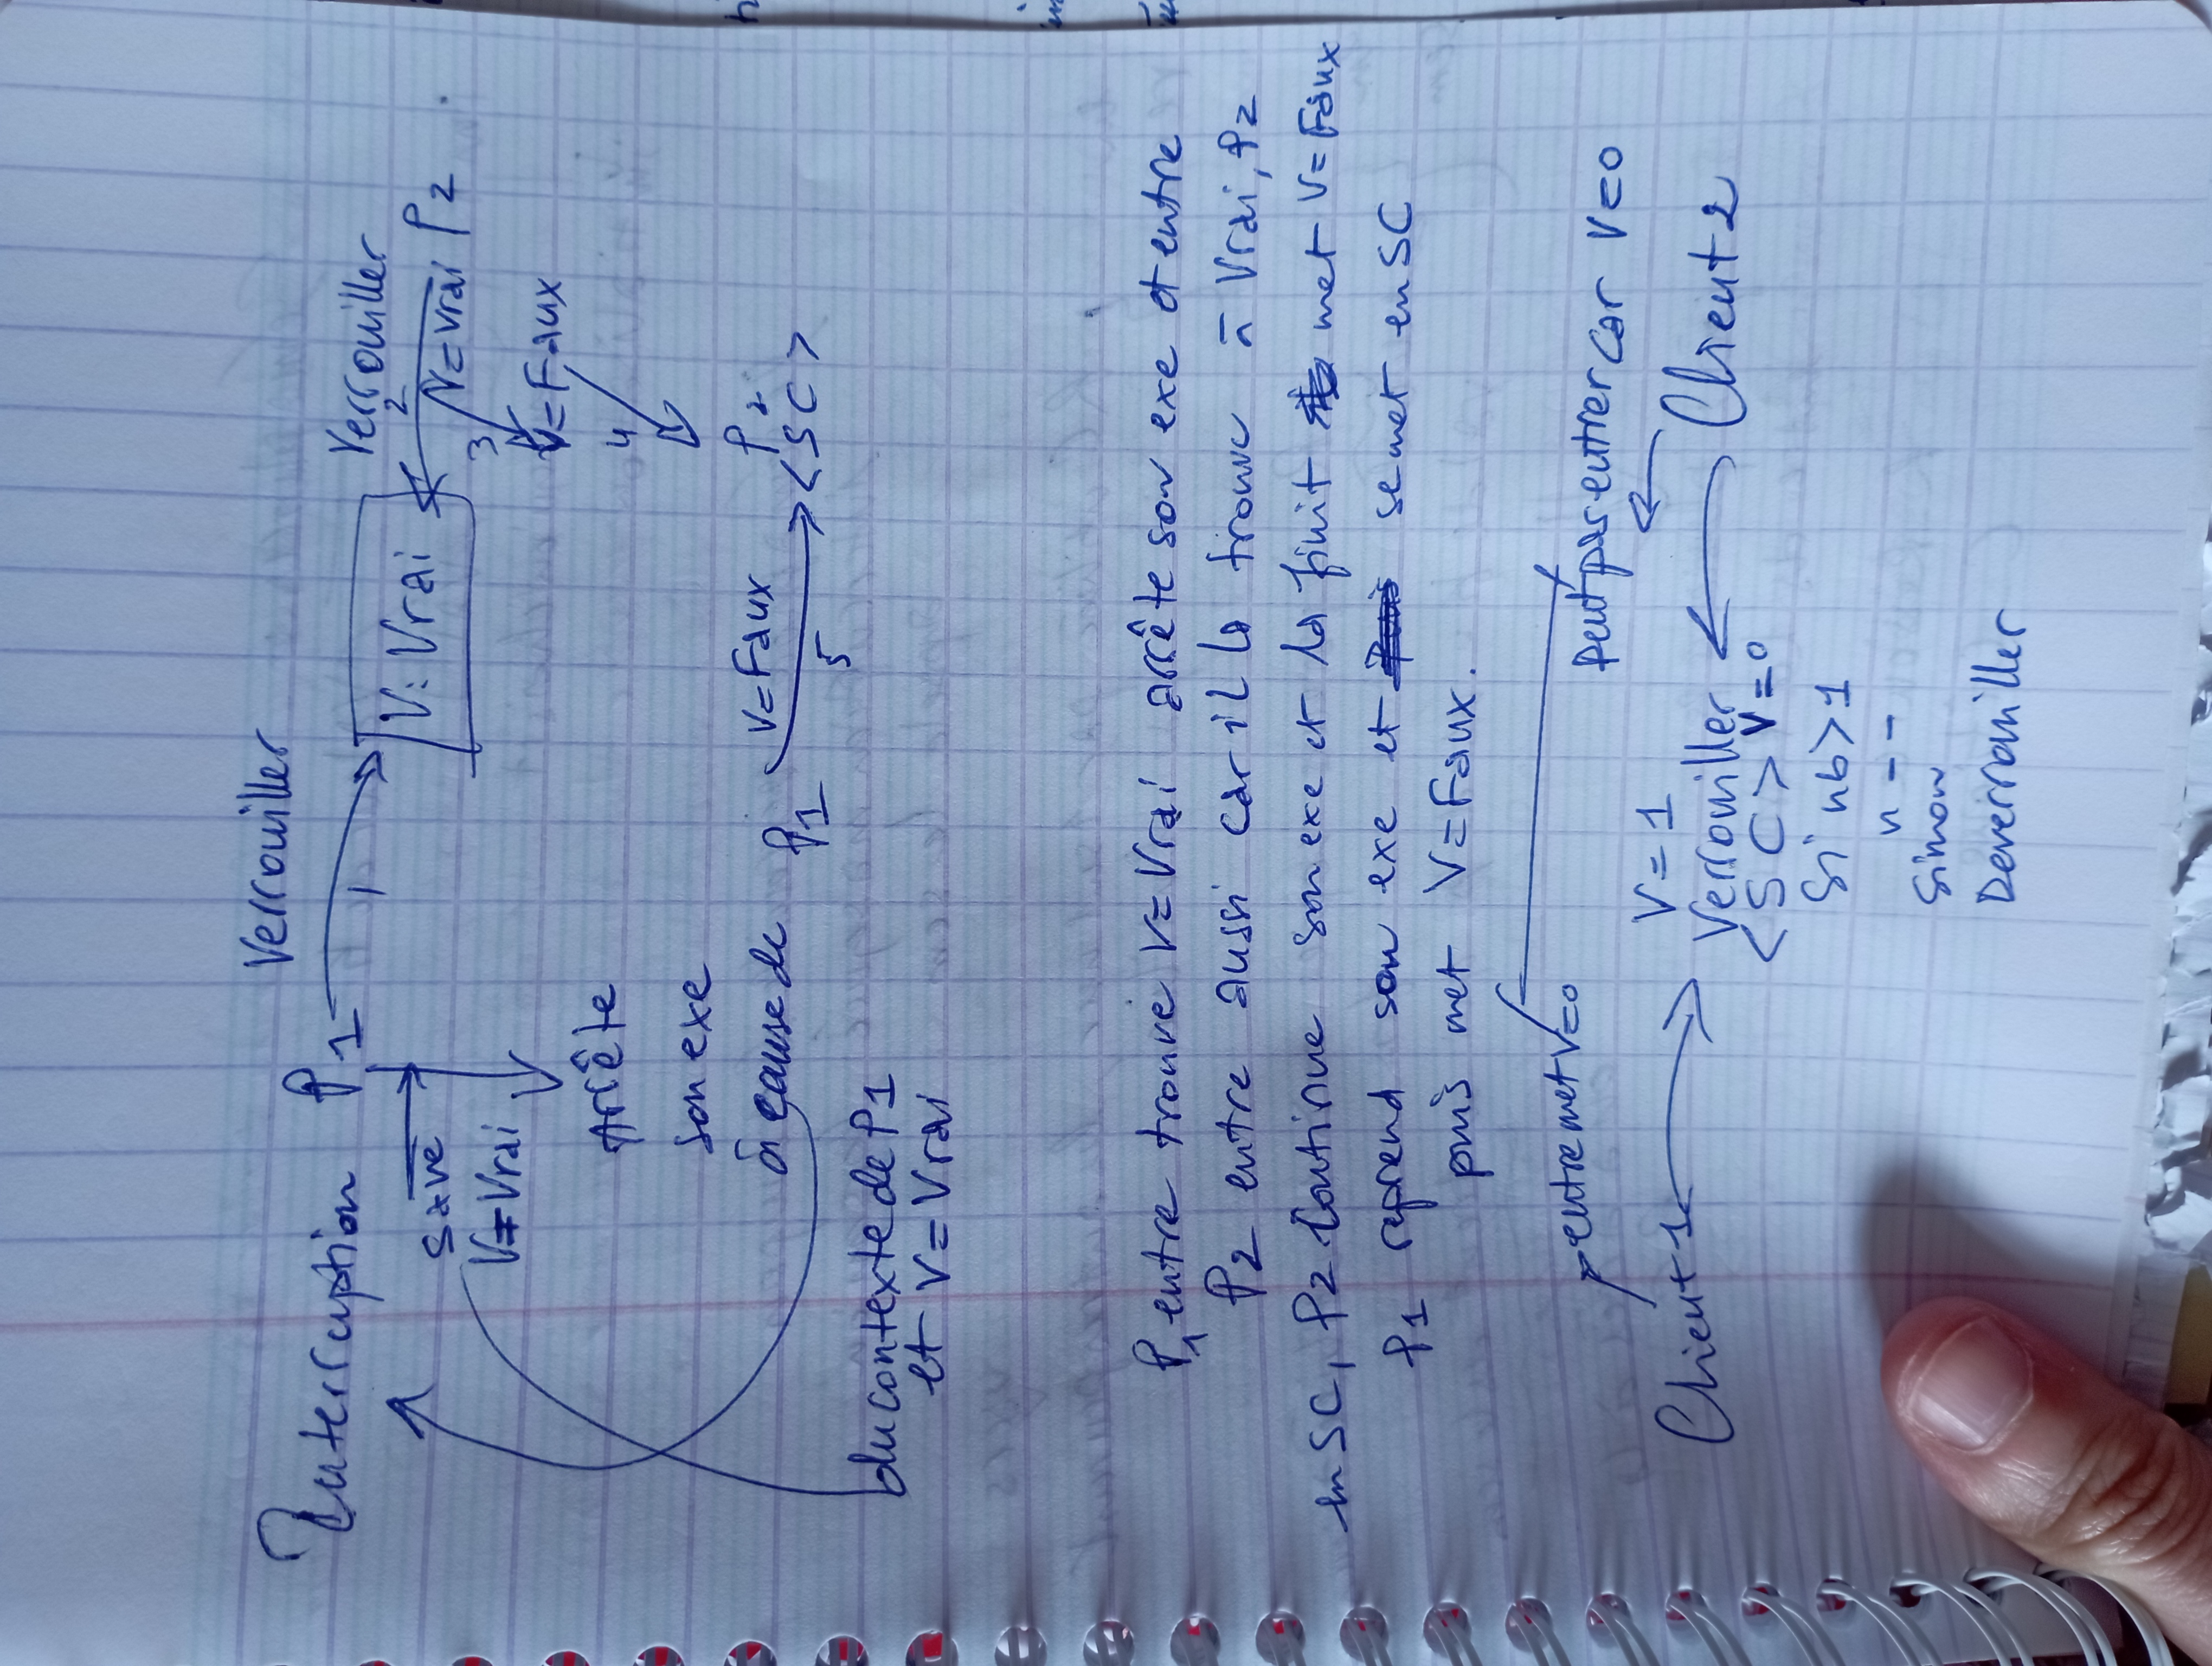 Verrouiller
Interruption P1
1
V: Vrai
Verrouiller
2
V=Vrai P2
save
V=Vrai
3
V=Faux
Arrête
4
son exe
à cause de
P1 V=Faux
5
P2
<SC>
du contexte de P1
et V=Vrai
P1 entre trouve V=Vrai arrête son exe et entre
P2 entre aussi car il la trouve à Vrai, P2
en SC, P2 Continue son exe et la finit met V=Faux
P1 reprend son exe et se met en SC
puis met V=Faux.
entre met V=0
peut pas entrer car V=0
V=1
Client 1
Verrouiller
Client 2
<SC> V=0
Si nb>1
n--
Sinon
Deverrouiller